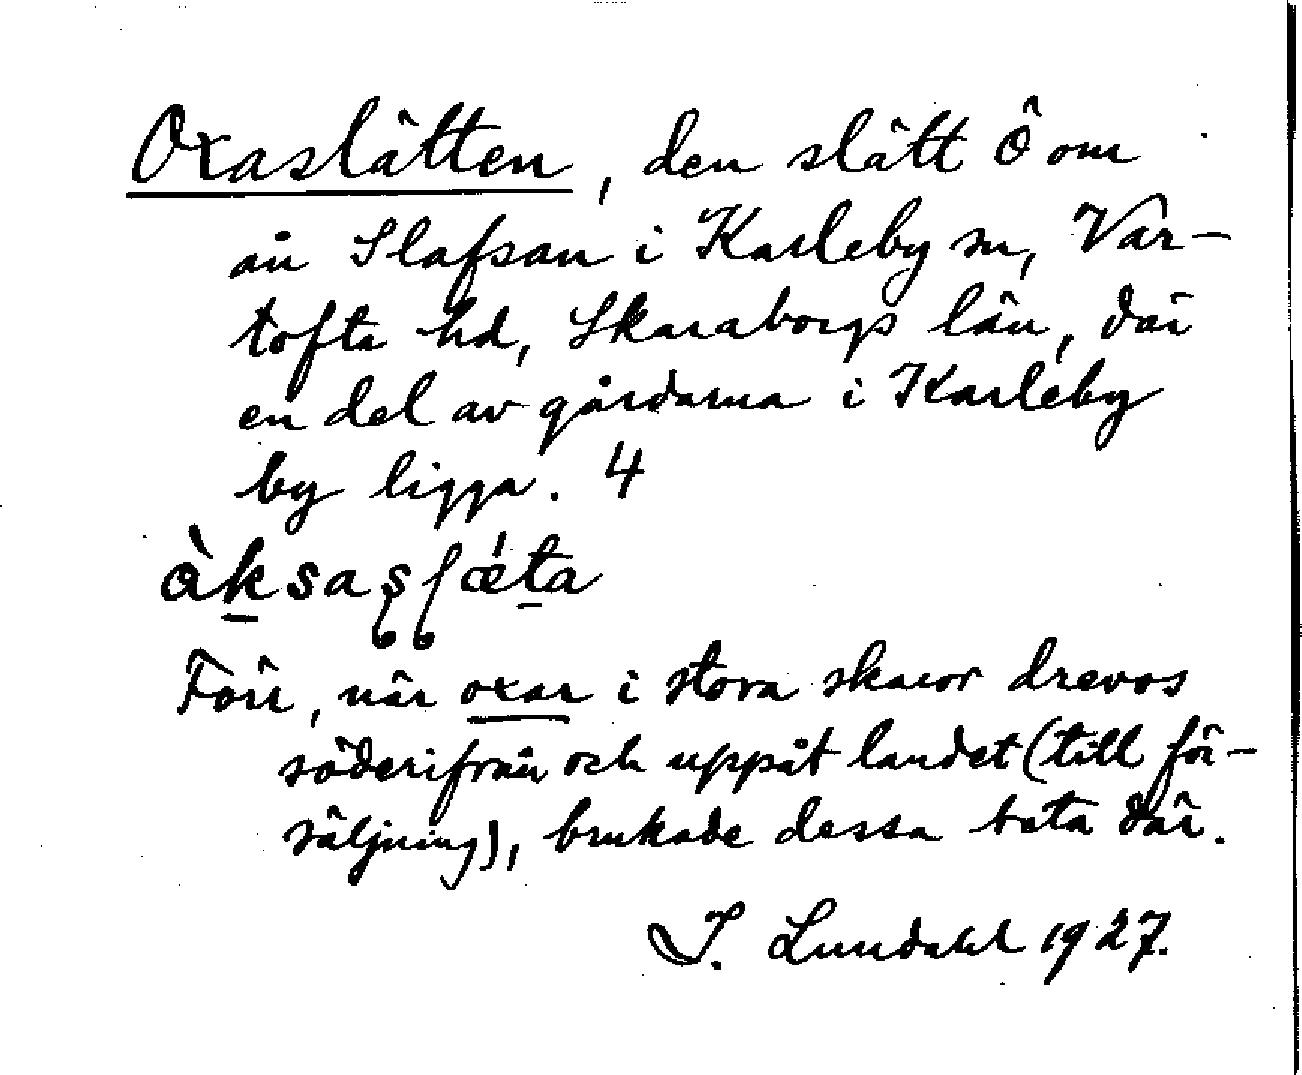 Oxaslätten, den slätt Ö om
ån Slafsan i Karleby sn, Var-
tofta hd, Skaraborgs län, där
en del av gårdarna i Karleby
by ligga. 4
àksasſǽta
Förr, när oxar i stora skaror drevos
söderifrån och uppåt landet (till för-
säljning), brukade dessa beta där.
I. Lundahl 1927.